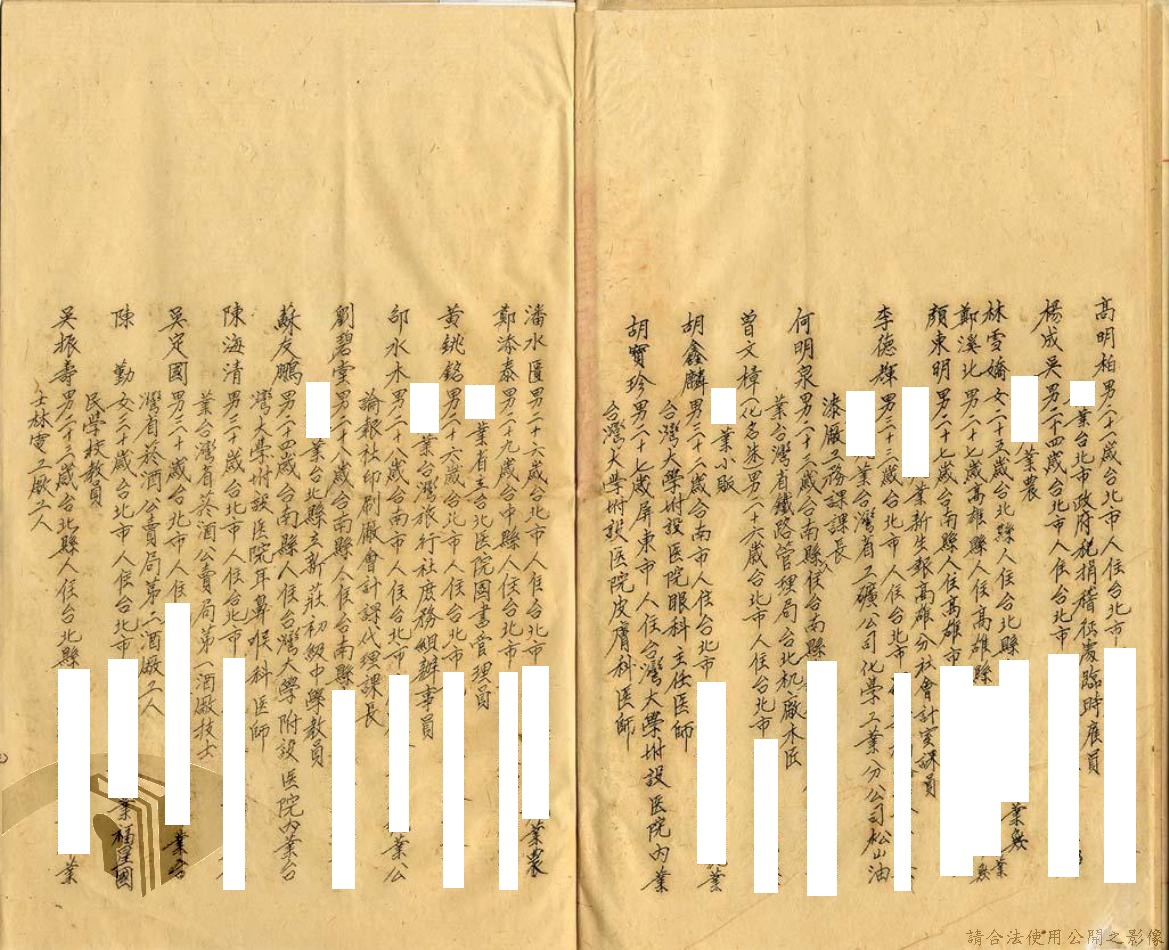 高明柏男二十一歲台北市人住台北市
業台北市政府稅捐稽征處臨時雇員
楊成吳男二十四歲台北市人住台北市
業農
林雪嬌女二十五歲台北縣人住台北縣 業無
鄭溪北男二十七歲高雄縣人住高雄縣 業無
顏東明男二十七歲台南縣人住高雄市
業新生報高雄分社會計室課員
李德輝男三十三歲台北市人住台北市
業台灣省工礦公司化學工業分公司松山油
漆廠工務課課長
何明泉男二十三歲台南縣人住台南縣
業台灣省鐵路管理局台北机廠木匠
曾文樟(化名 )男二十六歲台北市人住台北市
業小販
胡鑫麟男三十二歲台南市人住台北市 業
台灣大學附設医院眼科主任医師
胡寶珍男二十七歲屏東市人住台灣大學附設医院內業
台灣大學附設医院皮膚科医師
潘水匱男二十六歲台北市人住台北市 業農
鄭添泰男二十九歲台中縣人住台北市
業省立台北医院圖書管理員
黃銚銘男二十六歲台北市人住台北市
業台灣旅行社庶務組辦事員
邱水木男二十八歲台南市人住台北市 業公
論報社印刷廠會計課代理課長
劉碧堂男二十八歲台南縣人住台南縣
業台北縣立新莊初級中學教員
蘇友鵬男二十四歲台南縣人住台灣大學附設医院內業台
灣大學附設医院耳鼻喉科医師
陳海清男三十歲台北市人住台北市
業台灣省菸酒公賣局第一酒廠技士
吳定國男二十歲台北市人住 業台
灣省菸酒公賣局第二酒廠工人
陳 勤女三十歲台北市人住台北市 業福星國
民學校教員
吳振壽男二十三歲台北縣人住台北縣 業
士林電工廠工人
請合法使用公開之影像